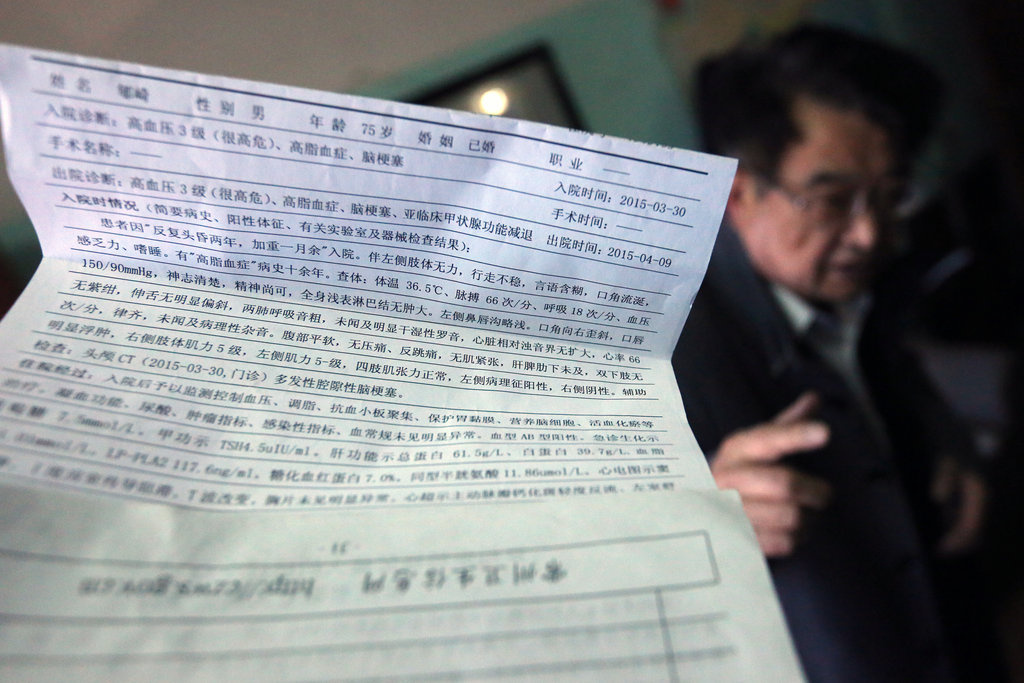 姓名 邹崎 性别 男 年龄 75岁 婚姻 已婚 职业 ——
入院诊断：高血压3级（很高危）、高脂血症、脑梗塞 入院时间：2015-03-30
手术名称：—— 手术时间：——
出院诊断：高血压3级（很高危）、高脂血症、脑梗塞、亚临床甲状腺功能减退 出院时间：2015-04-09
入院时情况（简要病史、阳性体征、有关实验室及器械检查结果）：
患者因"反复头昏两年，加重一月余"入院。伴左侧肢体无力，行走不稳，言语含糊，口角流涎，
感乏力、嗜睡。有"高脂血症"病史十余年。查体：体温 36.5℃、脉搏 66 次/分、呼吸 18 次/分、血压
150/90mmHg，神志清楚，精神尚可，全身浅表淋巴结无肿大。左侧鼻唇沟略浅。口角向右歪斜，口唇
无紫绀，伸舌无明显偏斜，两肺呼吸音粗，未闻及明显干湿性罗音，心脏相对浊音界无扩大，心率 66
次/分，律齐，未闻及病理性杂音。腹部平软，无压痛、反跳痛，无肌紧张，肝脾肋下未及，双下肢无
明显浮肿，右侧肢体肌力 5 级，左侧肌力 5-级，四肢肌张力正常，左侧病理征阳性，右侧阴性。辅助
检查：头颅 CT（2015-03-30,门诊）多发性腔隙性脑梗塞。
在院经过：入院后予以监测控制血压、调脂、抗血小板聚集、保护胃黏膜、营养脑细胞、活血化瘀等
治疗。凝血功能、尿酸、肿瘤指标、感染性指标、血常规未见明显异常。血型 AB 型阳性。急诊生化示
7.5mmol/L。甲功示 TSH4.5uIU/ml。肝功能示总蛋白 61.5g/L、白蛋白 39.7g/L，血脂
LP-PLA2 117.6ng/ml。糖化血红蛋白 7.0%。同型半胱氨酸 11.86umol/L。心电图示窦
T 波改变。胸片未见明显异常。心超示主动脉瓣钙化伴轻度反流、左室舒
常州卫生信息网